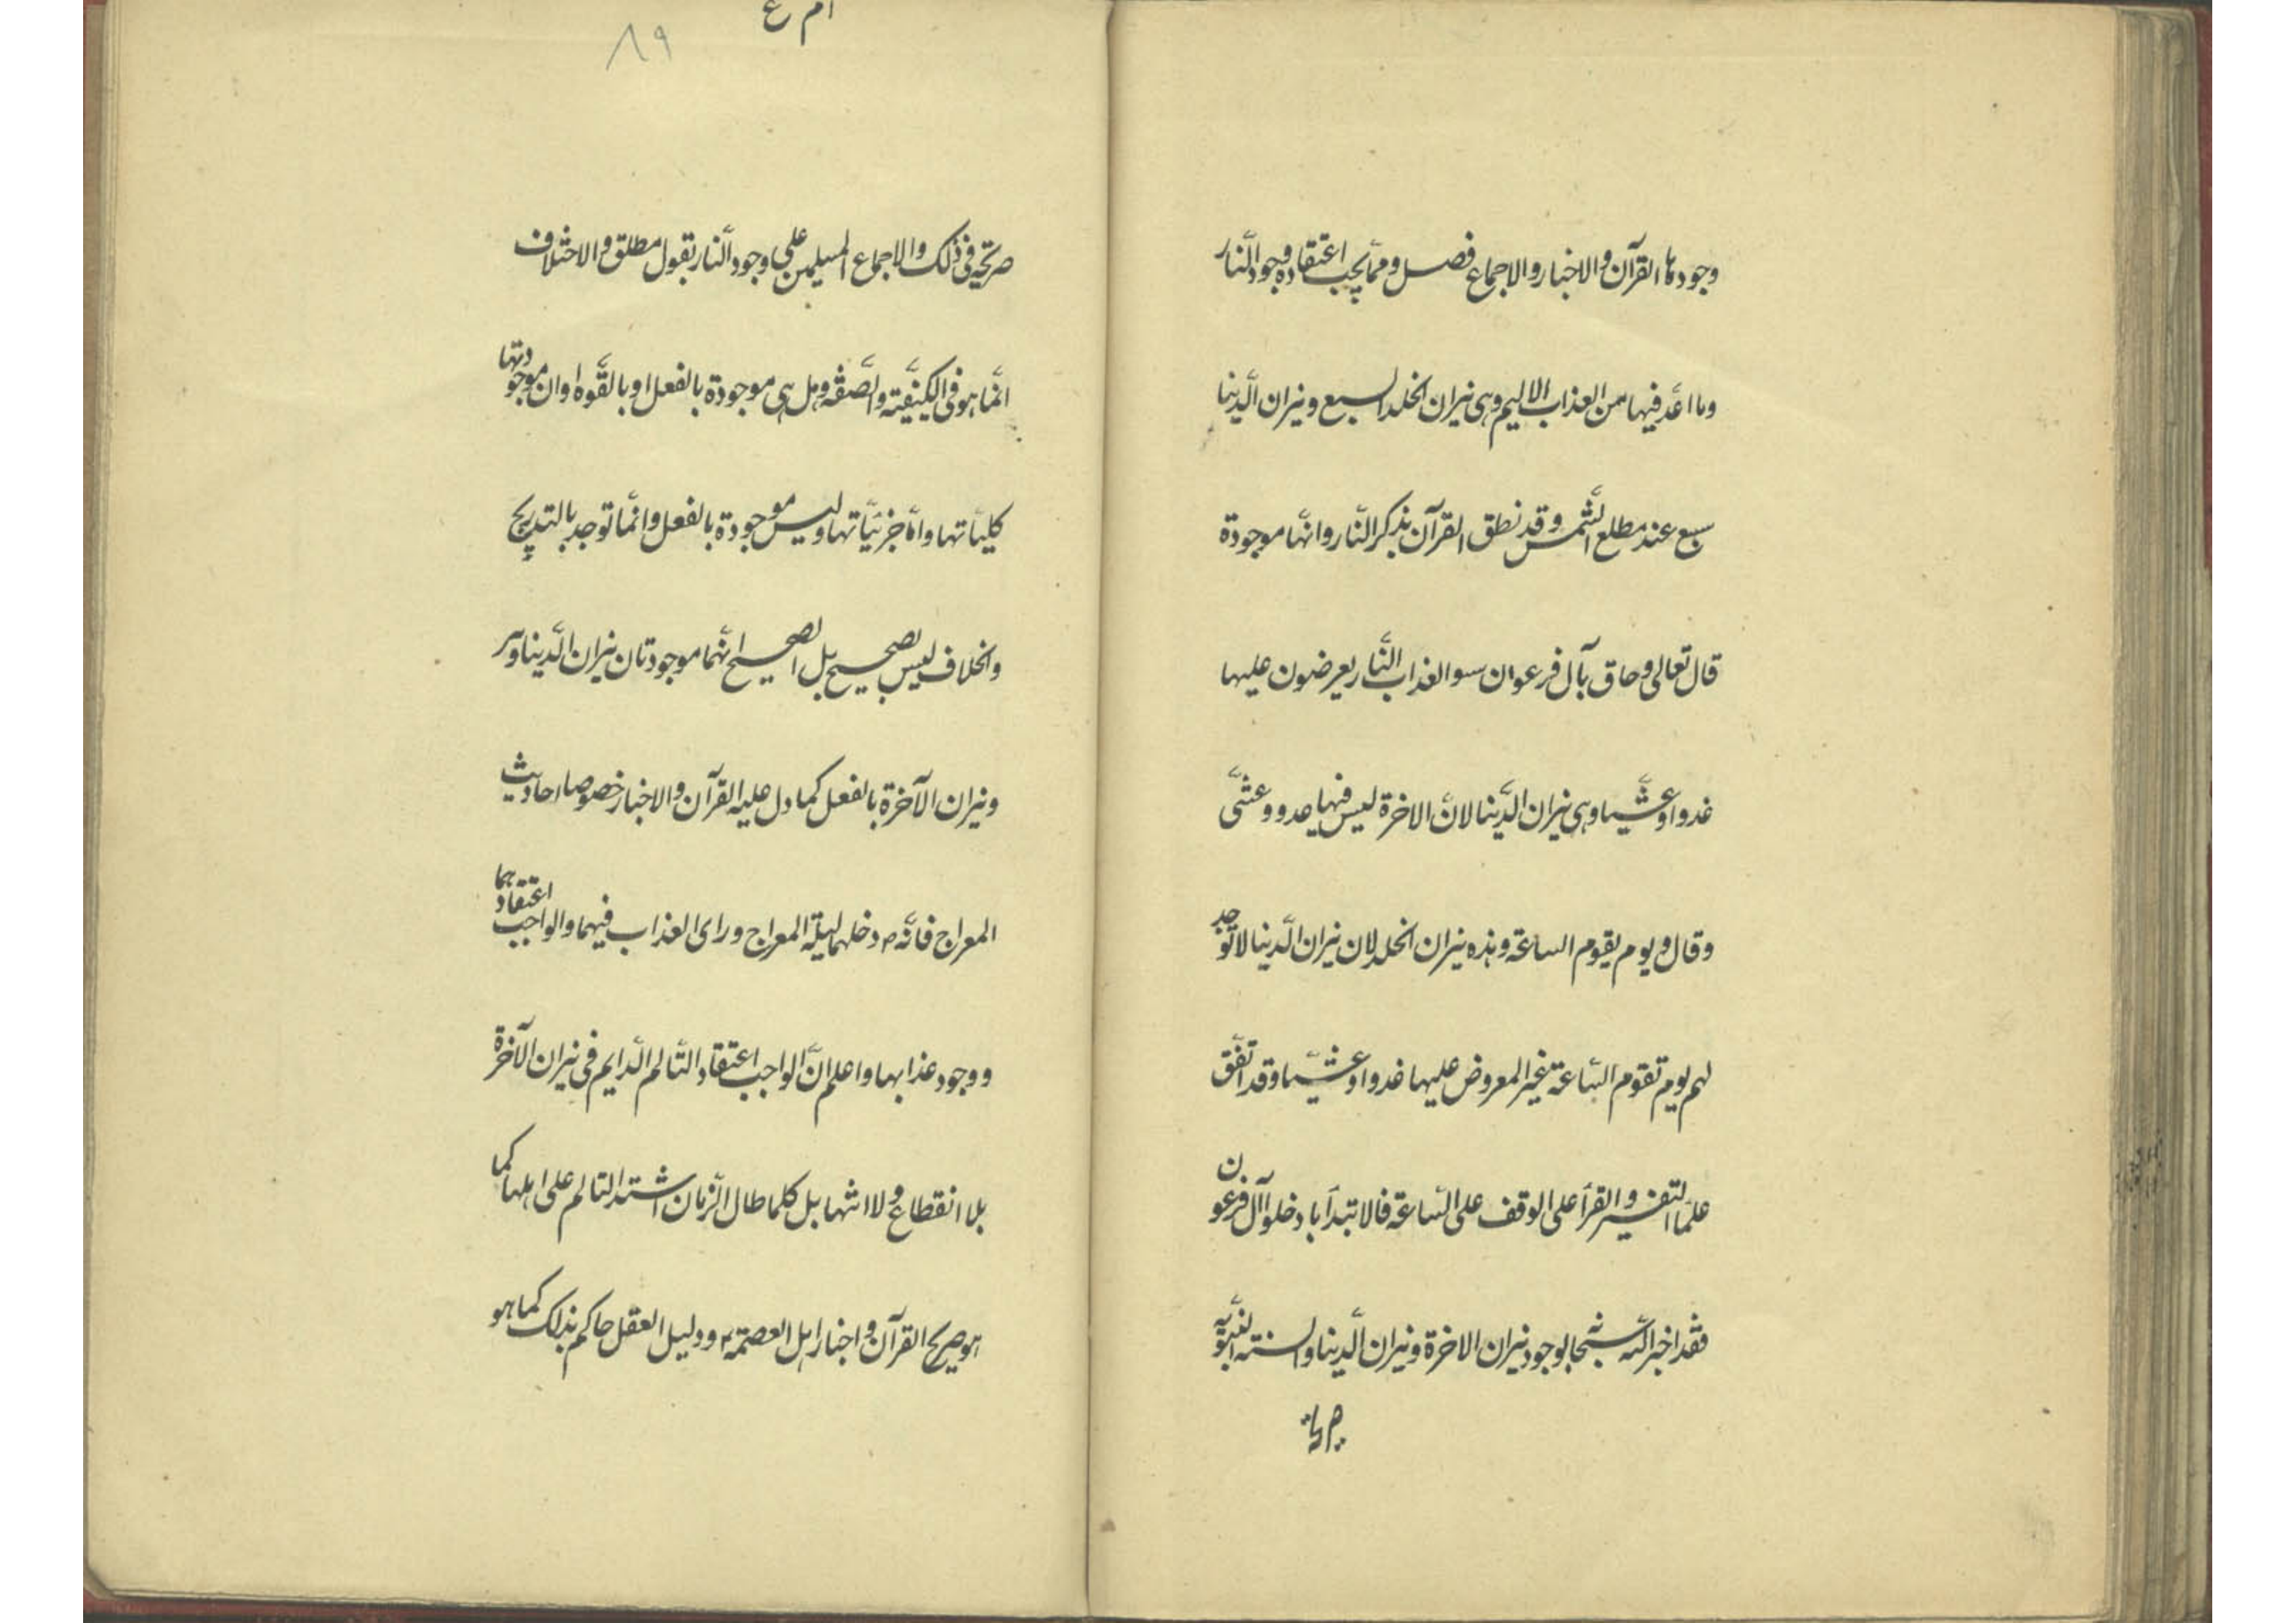 وجودها القرآن والاخبار والاجماع فصل ومما يجب اعتقاده وجود النار
وما اعد فيها من العذاب الاليم وهى نيران الخلد السبع ونيران الدنيا
سبع عند مطلع الشمس وقد نطق القرآن بذكر النار وانها موجودة
قال تعالى وحاق بآل فرعون سو العذاب النار يعرضون عليها
غدوا وعشيا وهى نيران الدنيا لان الاخرة ليس فيها غدو وعشى
وقال ويوم يقوم الساعة وهذه نيران الخلد لان نيران الدنيا لا توجد
لهم يوم تقوم الساعة غير المعروض عليها غدوا وعشيا وقد اتفق
علما التفسير والقرأ على الوقف على الساعة فالابتدآ بادخلوا آل فرعون
فقد اخبر الله سبحانه بوجود نيران الاخرة ونيران الدنيا والسنة النبوية
صريحة
ام ع
٨٩
صريحة فى ذلك والاجماع المسلمين على وجود النار بقول مطلق والاختلاف
انما هو فى الكيفية والصفة وهل هى موجودة بالفعل او بالقوه او ان موجودتها
كلياتها واما جزئياتها وليس موجودة بالفعل وانما توجد بالتدريج
والخلاف ليس بصحيح بل الصحيح انهما موجودتان نيران الدنيا
ونيران الآخرة بالفعل كما دل عليه القرآن والاخبار خصوصا احاديث
المعراج فانه ص دخلهما ليلة المعراج وراى العذاب فيهما والواجب اعتقادهما
ووجود عذابها واعلم ان الواجب اعتقاد التالم الدايم فى نيران الآخرة
بلا انقطاع ولا انتها بل كلما طال الزمان اشتد التالم على اهلها كما
هو صريح القرآن واخبار اهل العصمة ودليل العقل حاكم بذلك كما هو